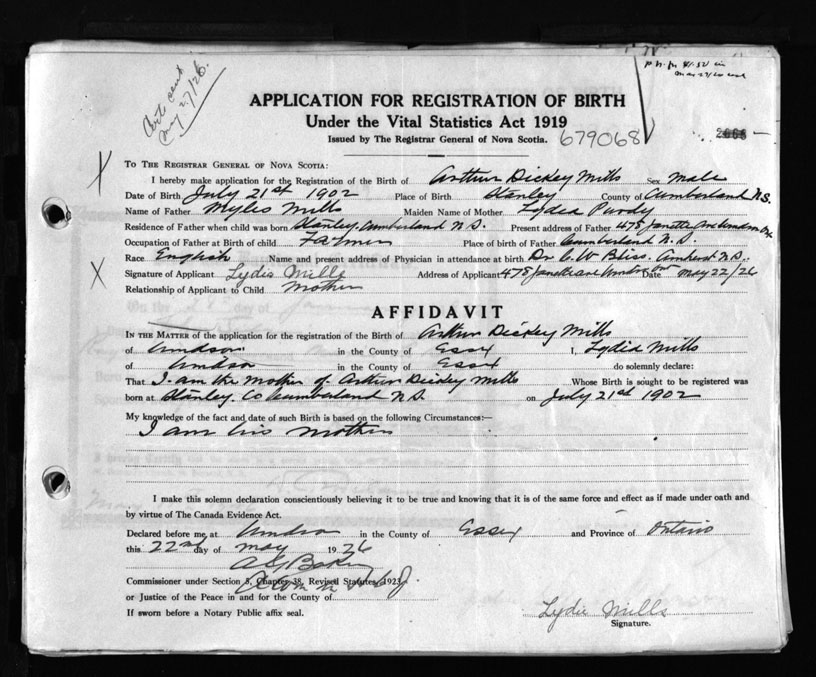 Cert. sent
May 27/26.
APPLICATION FOR REGISTRATION OF BIRTH
Under the Vital Statistics Act 1919
Issued by The Registrar General of Nova Scotia.
679068
To The Registrar General of Nova Scotia:
I hereby make application for the Registration of the Birth of Arthur Dickey Mills Sex Male
Date of Birth July 21st 1902 Place of Birth Stanley County of Cumberland N.S.
Name of Father Myles Mills Maiden Name of Mother Lydia Purdy
Residence of Father when child was born Stanley, Cumberland N.S. Present address of Father 478 Janette Ave Windsor Ont
Occupation of Father at Birth of child Farmer Place of birth of Father Cumberland N.S.
Race English Name and present address of Physician in attendance at birth Dr C. W Bliss. Amherst N.S.
Signature of Applicant Lydia Mills Address of Applicant 478 Janette ave Windsor Ont Date May 22/26
Relationship of Applicant to Child Mother
AFFIDAVIT
In the Matter of the application for the registration of the Birth of Arthur Dickey Mills
of Windsor in the County of Essex I, Lydia Mills
of Windsor in the County of Essex do solemnly declare:
That I am the mother of Arthur Dickey Mills Whose Birth is sought to be registered was
born at Stanley Co Cumberland N.S. on July 21st 1902
My knowledge of the fact and date of such Birth is based on the following Circumstances:—
I am his mother
I make this solemn declaration conscientiously believing it to be true and knowing that it is of the same force and effect as if made under oath and
by virtue of The Canada Evidence Act.
Declared before me at Windsor in the County of Essex and Province of Ontario
this 22nd day of May 1926
Commissioner under Section 5, Chapter 38, Revised Statutes, 1923
or Justice of the Peace in and for the County of
If sworn before a Notary Public affix seal.
Lydia Mills
Signature.